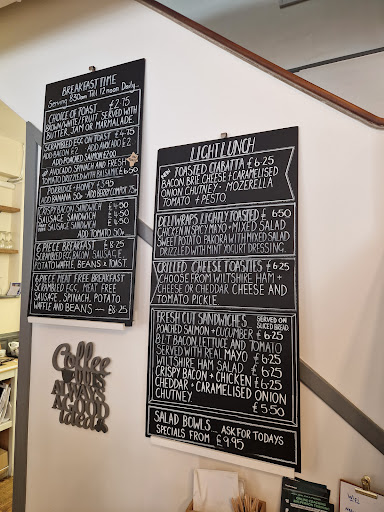 BREAKFAST TIME
Serving 8:30am Till 12 noon Daily...
CHOICE OF TOAST £2.75
BROWN/WHITE/FRUIT SERVED WITH
BUTTER, JAM OR MARMALADE
SCRAMBLED EGG ON TOAST £4.75
ADD BACON £2 ADD AVOCADO £2
ADD POACHED SALMON £2.00
AVOCADO SPINACH AND FRESH
TOMATO DRESSED WITH BALSAMIC £6
PORRIDGE + HONEY £3.95
ADD BANANA 50p ADD BERRY COMPOT 75p
CRISPY BACON SANDWICH £4.50
SAUSAGE SANDWICH £4.50
SAUSAGE SANDWICH £4.50
ADD TOMATO 50p
6 PIECE BREAKFAST £8.25
SCRAMBLED EGG, BACON, SAUSAGE,
POTATO WAFFLE, BEANS + TOAST
6 PIECE MEAT FREE BREAKFAST
SCRAMBLED EGG, MEAT FREE
SAUSAGE, SPINACH, POTATO
WAFFLE AND BEANS — £8.25
LIGHT LUNCH
TOASTED CIABATTA £6.25
BACON BRIE CHEESE + CARAMELISED
ONION CHUTNEY - MOZERELLA
TOMATO + PESTO
DELI WRAPS LIGHTLY TOASTED £6.50
CHICKEN IN SPICY MAYO + MIXED SALAD
SWEET POTATO PAKORA WITH MIXED SALAD
DRIZZLED WITH MINT YOGURT DRESSING
GRILLED CHEESE TOASTIES £6.25
CHOOSE FROM WILTSHIRE HAM +
CHEESE OR CHEDDAR CHEESE AND
TOMATO PICKLE
FRESH CUT SANDWICHES SERVED ON
SLICED BREAD
POACHED SALMON + CUCUMBER £6.25
BLT BACON, LETTUCE AND TOMATO
SERVED WITH REAL MAYO £6.25
WILTSHIRE HAM SALAD £6.25
CRISPY BACON + CHICKEN £6.25
CHEDDAR + CARAMELISED ONION
CHUTNEY £5.50
SALAD BOWLS... ASK FOR TODAYS
SPECIALS FROM £9.95
Coffee
IS
ALWAYS
A GOOD
idea